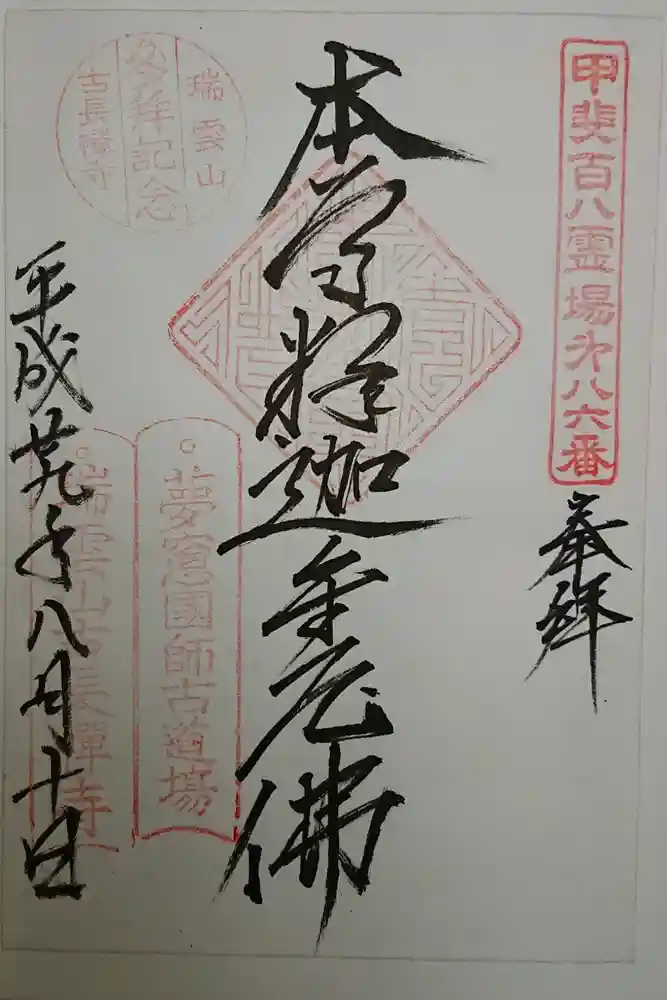 甲斐百八霊場第八六番
奉拝
本尊釈迦牟尼佛
夢窓國師古道場
瑞雲山古長禅寺
瑞雲山
参拝記念
古長禅寺
平成廿九年八月十日